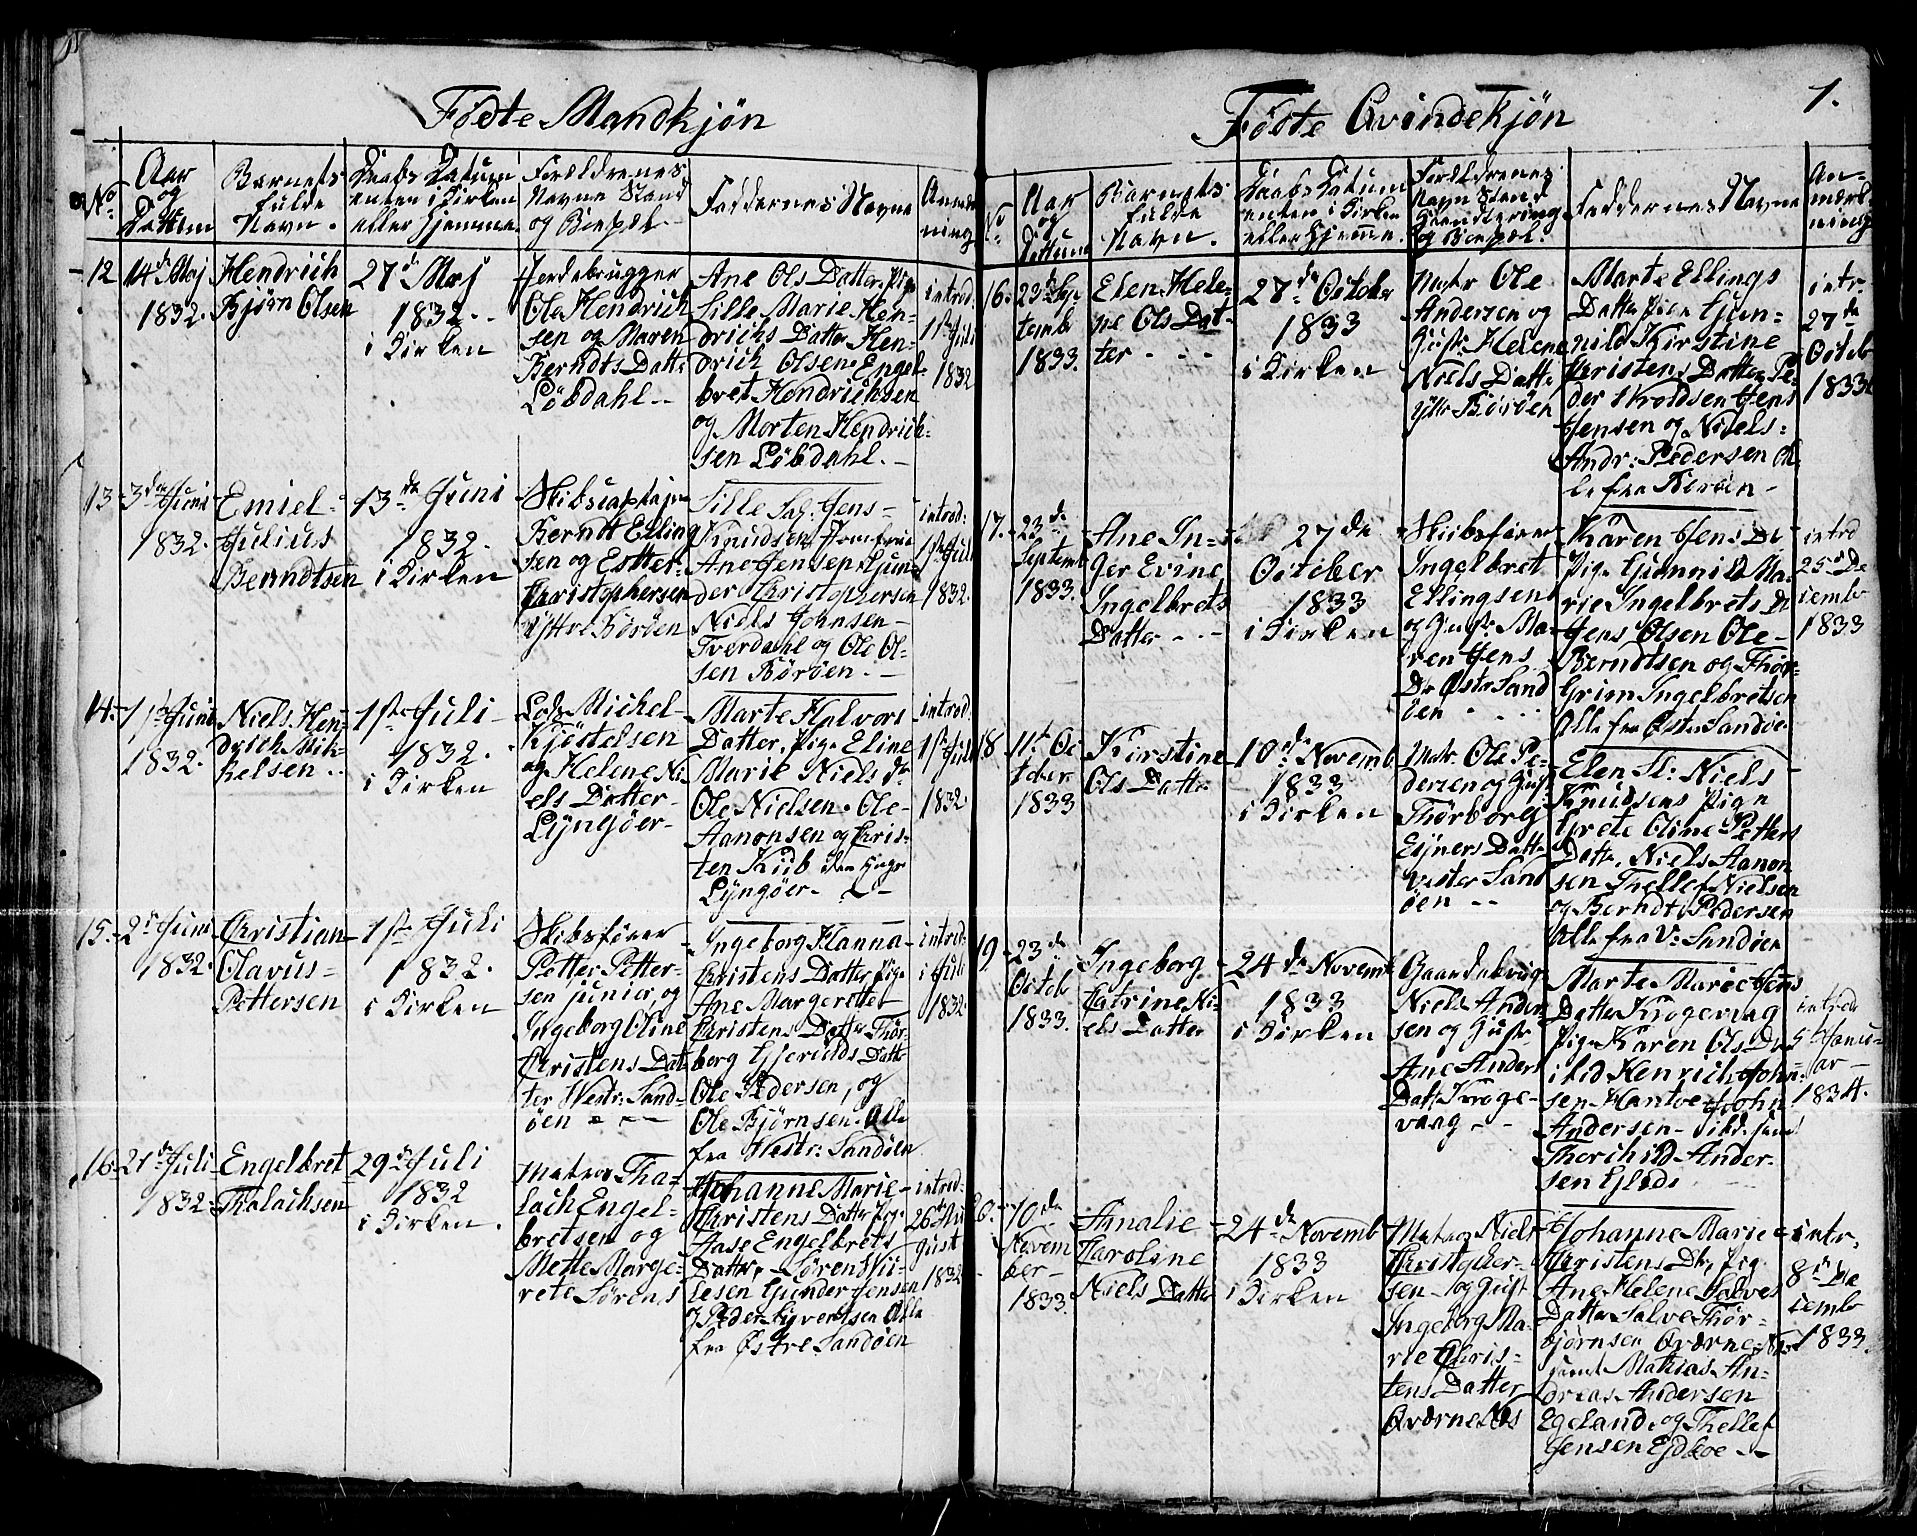 Fødte Mandkjøn
No.
Aar
og
Dattum
Barnets
fulde
Navn.
Daabs Datum
enten i Kirken
eller Hjemme
Forældrenes
Navne Stand
og Bopæl.
Faddernes Navne
Anmæ
ning
12
14de Maj
1832.
Hendrich
Bjørn Olsen
27de Maj
1832.
i Kirken
Ole Hendrich
sen og Maren
Berndts Datt.
Løbdahl.
Ane Ols Datter, Pige
Sille Marie Hen-
drichs Datter Hen-
drich Olsen Engel-
bret Hendrichsen
og Morten Hendrich-
sen Løbdahl.
introd:
1ste Juli
1832
13
3die Juni
1832.
Emiel
Julius
Berndtsen
13de Juni
1832.
i Kirken
Skibscaptajn
Berndt Elling
sen og Ester
Christophersen
Yttre Børøen
Sille Sal: Jens
Knudsen Jomfrue
Ane Jensen Gun-
der Christophersen
Niels Johnsen
Tverdahl og Ole Ol-
sen Børøen.
introd:
1ste Juli
1832.
14
1ste Juni
1832.
Niels Hen-
drich Mik-
kelsen
1ste Juli
1832.
i Kirken
Lods Michel
Kjøstelsen
og Helene Ni-
els Datter
Lyngøer
Marte Halvors
Datter, Pige Eline
Marie Niels Dr
Ole Nielsen Ole
Aanonsen og Chris-
ten Kiib
Lyngøer
introd:
1ste Juli
1832
15
2de Juni
1832.
Christian
Olavus
Pettersen
1ste Juli
1832.
i Kirken
Skibsfører
Petter Petter-
sen junier, og
Ingeborg Oline
Christens Dat
ter Westr: Sand-
øen
Ingeborg Hanna
Christens Datter Pige
Ane Margerette
Christens Datter Thor-
borg Gjeruldsdatter
Ole Pedersen, og
Ole Bjørnsen. Alle
fra Westr: Sandøen
introd:
1 Juli
1832
16
21de Juli
1832.
Engelbret
Thalachsen
29de Juli
1832
i Kirken.
Matros Tha-
lach Engel-
bretsen og
Mette Marge-
rete Sørens
Johanne Marie
Christens Datter Pige
Aase Engelbrets
Datter, Søren
Gunder Jensen
Peder Syvertsen Alle
fra Østre Sandøen
introd:
26de Au
gust
1832
Fødte Qvindekjøn
1.
No
Aar
og
Dattum
Barnets
fulde
Navn.
Daabs Datum
enten i Kirken
eller Hjemme.
Forældrenes
Navn Stand
Haandtering
og Bopæl.
Faddernes Navne
An-
mærk
ning
16
23de Sep
temb
1833.
Elen Hele-
ne Ols Dat-
ter
27de October
1833
i Kirken
Matr Ole
Andersen og
Hustr: Helene
Niels Datte
Yttr Børøen
Marte Ellings
Datter Pige Gun-
nild Kirstine
Christens Datter Pe-
der Iensen
Jensen og Niels
Andr: Pedersen Al-
le fra Børøen
intr.
27de
Octob
1833
17.
23de
Septemb
1833.
Ane In-
ger Evine
Ingelbrets
Datter
27de
October
1833
i Kirken
Skibsfører
Ingelbret
Ellingsen
og Hustr: Ma-
ren Jens
Dr Østr Sand
øen
Karen Jens Dr
Pige Gunnild Ma-
rie Ingelbrets Dr
Jens Olsen Ole
Berndtsen og Thor-
Grim Ingelbretsen
Alle fra Østr Sandøe
introd
25de De
cemb
1833
18
11te Oc
tober
1833
Kirstine
Ols Datter
10de Novemb
1833
i Kirken
Matr. Ole Pe-
dersen og Hust
Thorborg
Ejners Datte
Vester Sand
øen
Elen Sl: Niels
Knudsens Pige
Grete Oline Petters
Datter, Niels Aanon
sen Thellef Nielsen
og Berndt Pedersen
Alle fra V: Sandøen
19
23de
Octob
1833.
Ingeborg
Catrine Ni-
els Datter
24de Novemb
1833
i Kirken
Niels Ander
sen og Hustr
Ane Anders
Datt Kroge-
vaag
Marte Marie Jens
Datter Krogevaag
Pige Karen Ols Dr
ibid Henrich John-
sen Hantoe John
Andersen ibd. samt
Thorchild Ander-
sen
introd
5 Janu-
ar
1834.
20.
10de
Novem
ber
1833.
Amalie
Caroline
Niels Datter
24de Novemb
1833
i Kirken
Matros Niels
Christopher-
sen og Hust
Ingeborg Ma-
rie Chris-
tens Datter
Qværne Næs
Johanne Marie
Christens Dr, Pig
Ane Helene Salves
Datter Salve Thor-
bjørnsen Qværne Næs
samt Mathias An-
dreas Andersen
Egeland og Thellef
Jensen
intr.
8de De
cemb
1833.